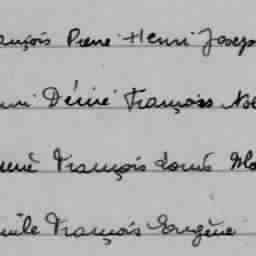 ançois Pierre Henri Josep
Désiré François No
René François Louis Ma
mile François Eugène